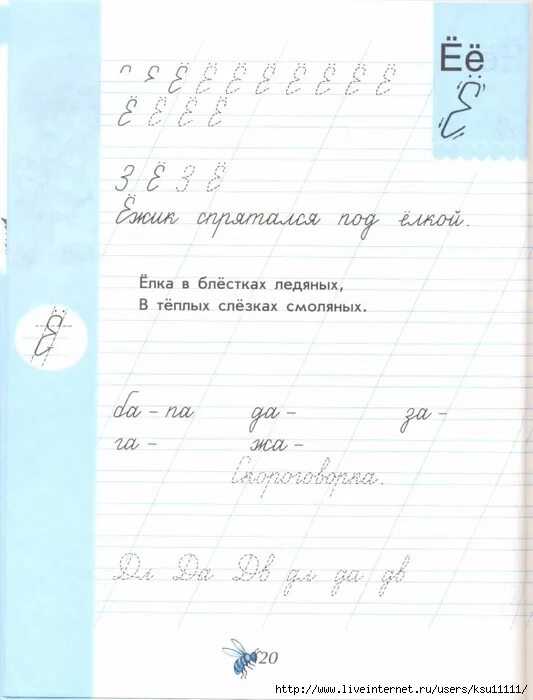 Ёё
Ё
Ё Ё Ё Ё Ё Ё Ё Ё
Ё Ё Ё Ё
З Ё З Ё
Ёжик спрятался под ёлкой.
Ёлка в блёстках ледяных,
В тёплых слёзках смоляных.
Ё
ба - па да - за -
га - жа -
Скороговорка.
Дл Да Дв дл да дв
20
http://www.liveinternet.ru/users/ksu11111/